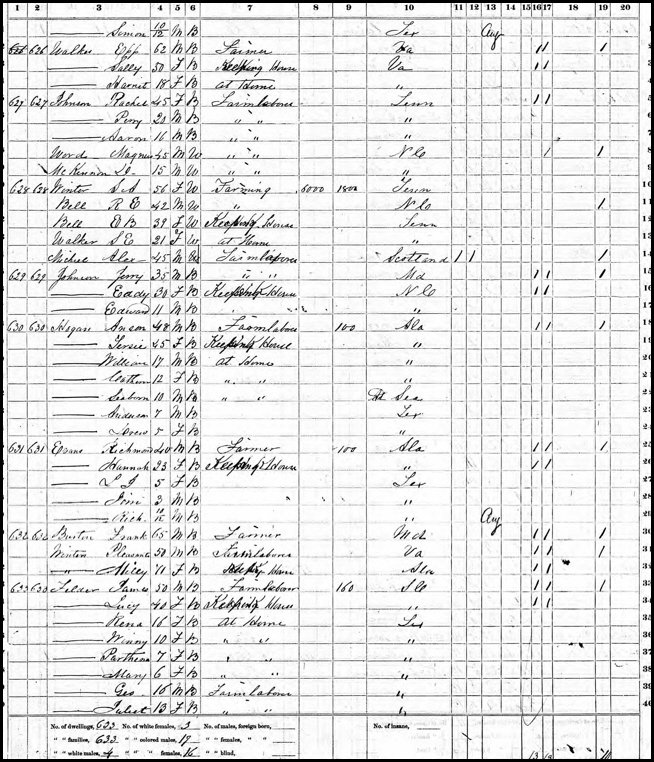 1 2 3 4 5 6 7 8 9 10 11 12 13 14 15 16 17 18 19 20
Simon 10/12 M B Tex Aug
626 626 Walker Epp 62 M B Farmer Va 1 1 1
Sally 50 F B Keeping House Va 1 1
Harriet 18 F B at Home "
627 627 Johnson Rachel 45 F B Farmlaborer Tenn 1 1
Perry 20 M B " " "
Aaron 16 M B " " "
Word Magnus 45 M W " " N C 1 1
McKinnon D. 15 M W " " "
628 628 Winter S A 56 F W Farming 6000 1800 Tenn
Bell R E 42 M W " N C 1
Bell E B 39 F W Keeping House Tenn
Walker S E 21 F W at Home "
Michel Alex 45 M W Farmlaborer Scotland 1 1 1
629 629 Johnson Jerry 35 M B " " Md 1 1 1
Eady 30 F B Keeping House N C 1 1
Edward 11 M B "
630 630 Hogan Anson 48 M B Farmlaborer 100 Ala 1 1 1
45 F B Keeping House "
William 17 M B at Home "
12 F B " " "
Seaborn 10 M B " " At Sea
Anderson 7 M B Tex
5 F B "
631 631 Evans Richmond 40 M B Farmer 100 Ala 1 1 1
Hannah 23 F B Keeping House " 1 1
L J 5 F B Tex
Jim 3 M B "
Rich. 10/12 M B " Aug
632 632 Burton Frank 65 M B Farmer Md 1 1 1
Winters Pleasant 50 M B Farmlaborer Va 1 1 1
" Milcy 71 F B Keeping House Ala 1 1
633 633 Felder James 50 M B Farmlaborer 160 S C 1 1 1
Lucy 40 F B Keeping House " 1 1
Rena 16 F B At Home Tex
Winny 10 F B " " "
Parthena 7 F B " " "
Mary 6 F B " " "
Geo 16 M B Farmlaborer "
Juliet 13 F B " " "
No. of dwellings, 633 No. of white females, 3 No. of males, foreign born, No. of insane,
" " families, 633 " " colored males, 17 " " females, " "
" " white males, 4 " " " females, 16 " " blind,